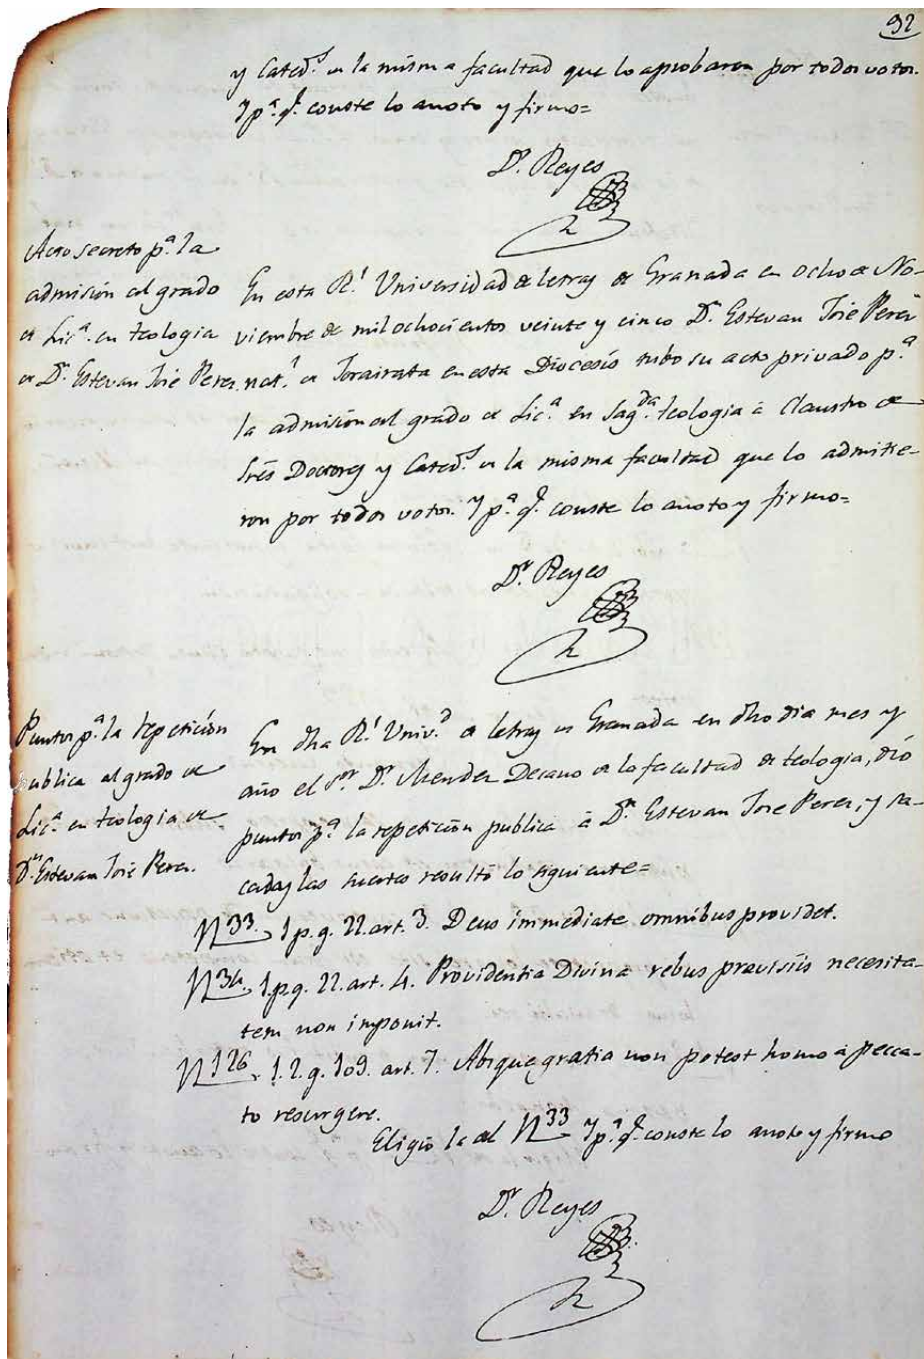 92
y Cated.s en la misma facultad que lo aprobaron por todos votos.
Y p.a q.e conste lo anoto y firmo=
D.r Reyes
Acto secreto p.a la
admisión al grado
de Lic.a en teologia
de D.n Estevan José Perez
En esta R.l Universidad de letras de Granada en ocho de No-
viembre de mil ochocientos veinte y cinco D.n Estevan José Perez
nat.l de Jorairata en esta Diocesis tubo su acto privado p.a
la admisión al grado de Lic.a en Sag.da teologia á Claustro de
Sres Doctores y Cated.s en la misma facultad que lo admitie-
ron por todos votos. Y p.a q.e conste lo anoto y firmo=
D.r Reyes
Puntos p.a la repetición
publica al grado de
Lic.a en teologia de
D.n Estevan José Perez.
En dha R.l Univ.d de letras de Granada en dho dia mes y
año el S.or D.r Mendez Decano de la facultad de teologia, dió
puntos p.a la repetición publica á D.n Estevan José Perez, y sa-
cadas las suertes resultó lo siguiente=
N.33. 1 p. q. 22. art. 3. Deus immediate omnibus providet.
N.34. 1. p. q. 22. art. 4. Providentia Divina rebus previsiis necesita-
tem non imponit.
N.126. 1. 2. q. 109. art. 7. Absque gratia non potest homo á pecca-
to resurgere.
Eligió la del N.33 Y p.a q.e conste lo anoto y firmo
D.r Reyes